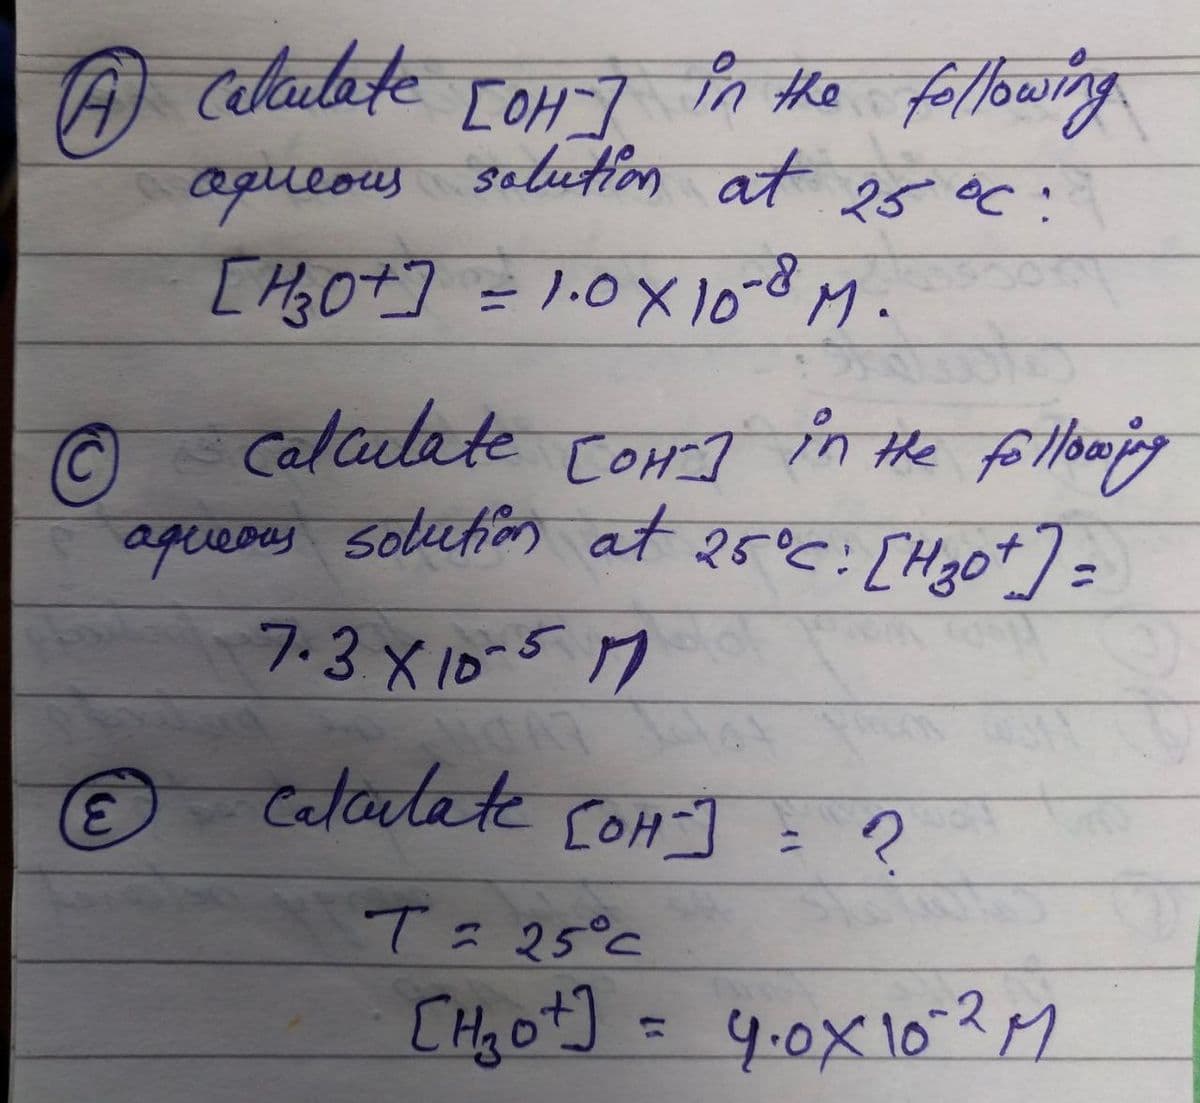 Ⓐ Calculate [OH⁻] in the following
aqueous solution at 25 °C :
[H₃O+] = 1.0 X 10⁻⁸ M.
Ⓒ Calculate [OH⁻] in the following
aqueous solution at 25°C: [H₃O⁺] =
7.3 X 10⁻⁵ M
Ⓔ Calculate [OH⁻] = ?
T = 25°C
[H₃O⁺] = 4.0X10⁻² M